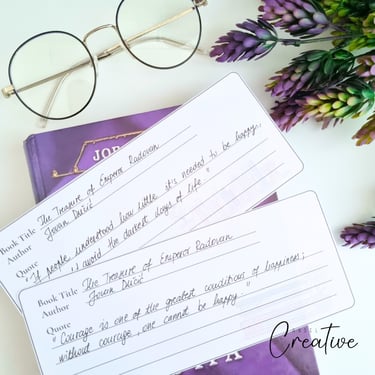 JOB
Book Title The Treasure of Emperor Radovan
Author Jovan Dučić
Quote
"If people understood how little it's needed to be happy,
avoid the darkest days of life"
Book Title The Treasure of Emperor Radovan
Author Jovan Dučić
Quote
"Courage is one of the greatest conditions of happiness;
without courage, one cannot be happy."
Creative